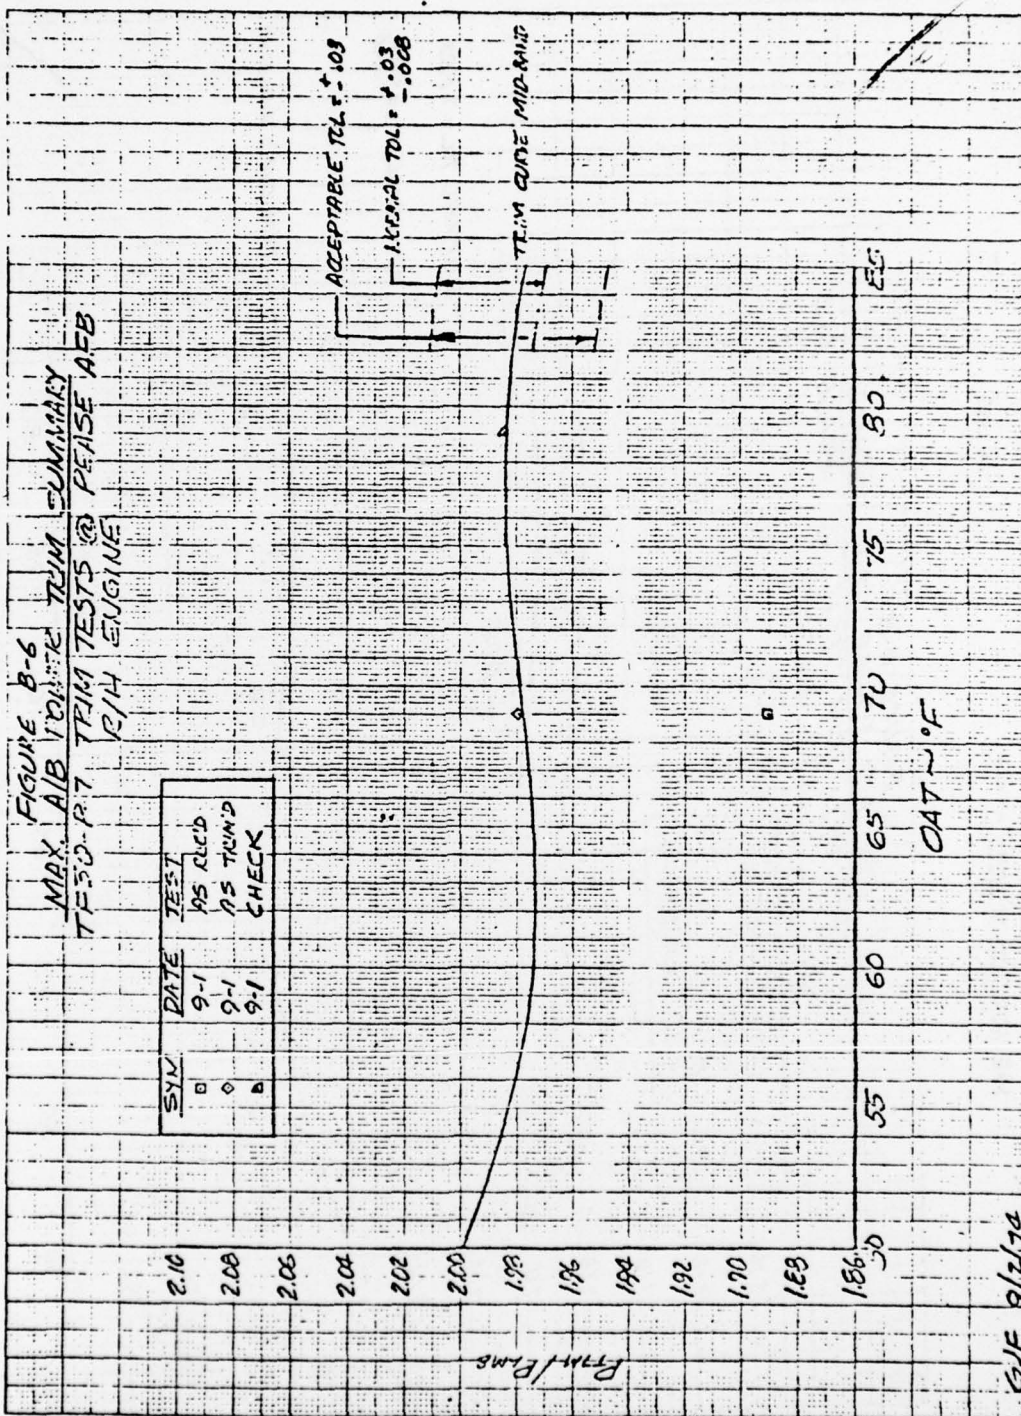 FIGURE B-6
MAX A/B TRIM SUMMARY
TF30-P-7 TRIM TESTS @ PEASE AFB
R/H ENGINE
SYM DATE TEST
□ 9-1 AS REC'D
◇ 9-1 AS TRIM'D
9-1 CHECK
ACCEPTABLE TOL = ±.03
TOL = +.03
-.008
TRIM CURVE MID-BAND
2.10
2.08
2.06
2.04
2.02
2.00
1.98
1.96
1.94
1.92
1.90
1.88
1.86
50
55
60
65
70
75
80
85
OAT ~ °F